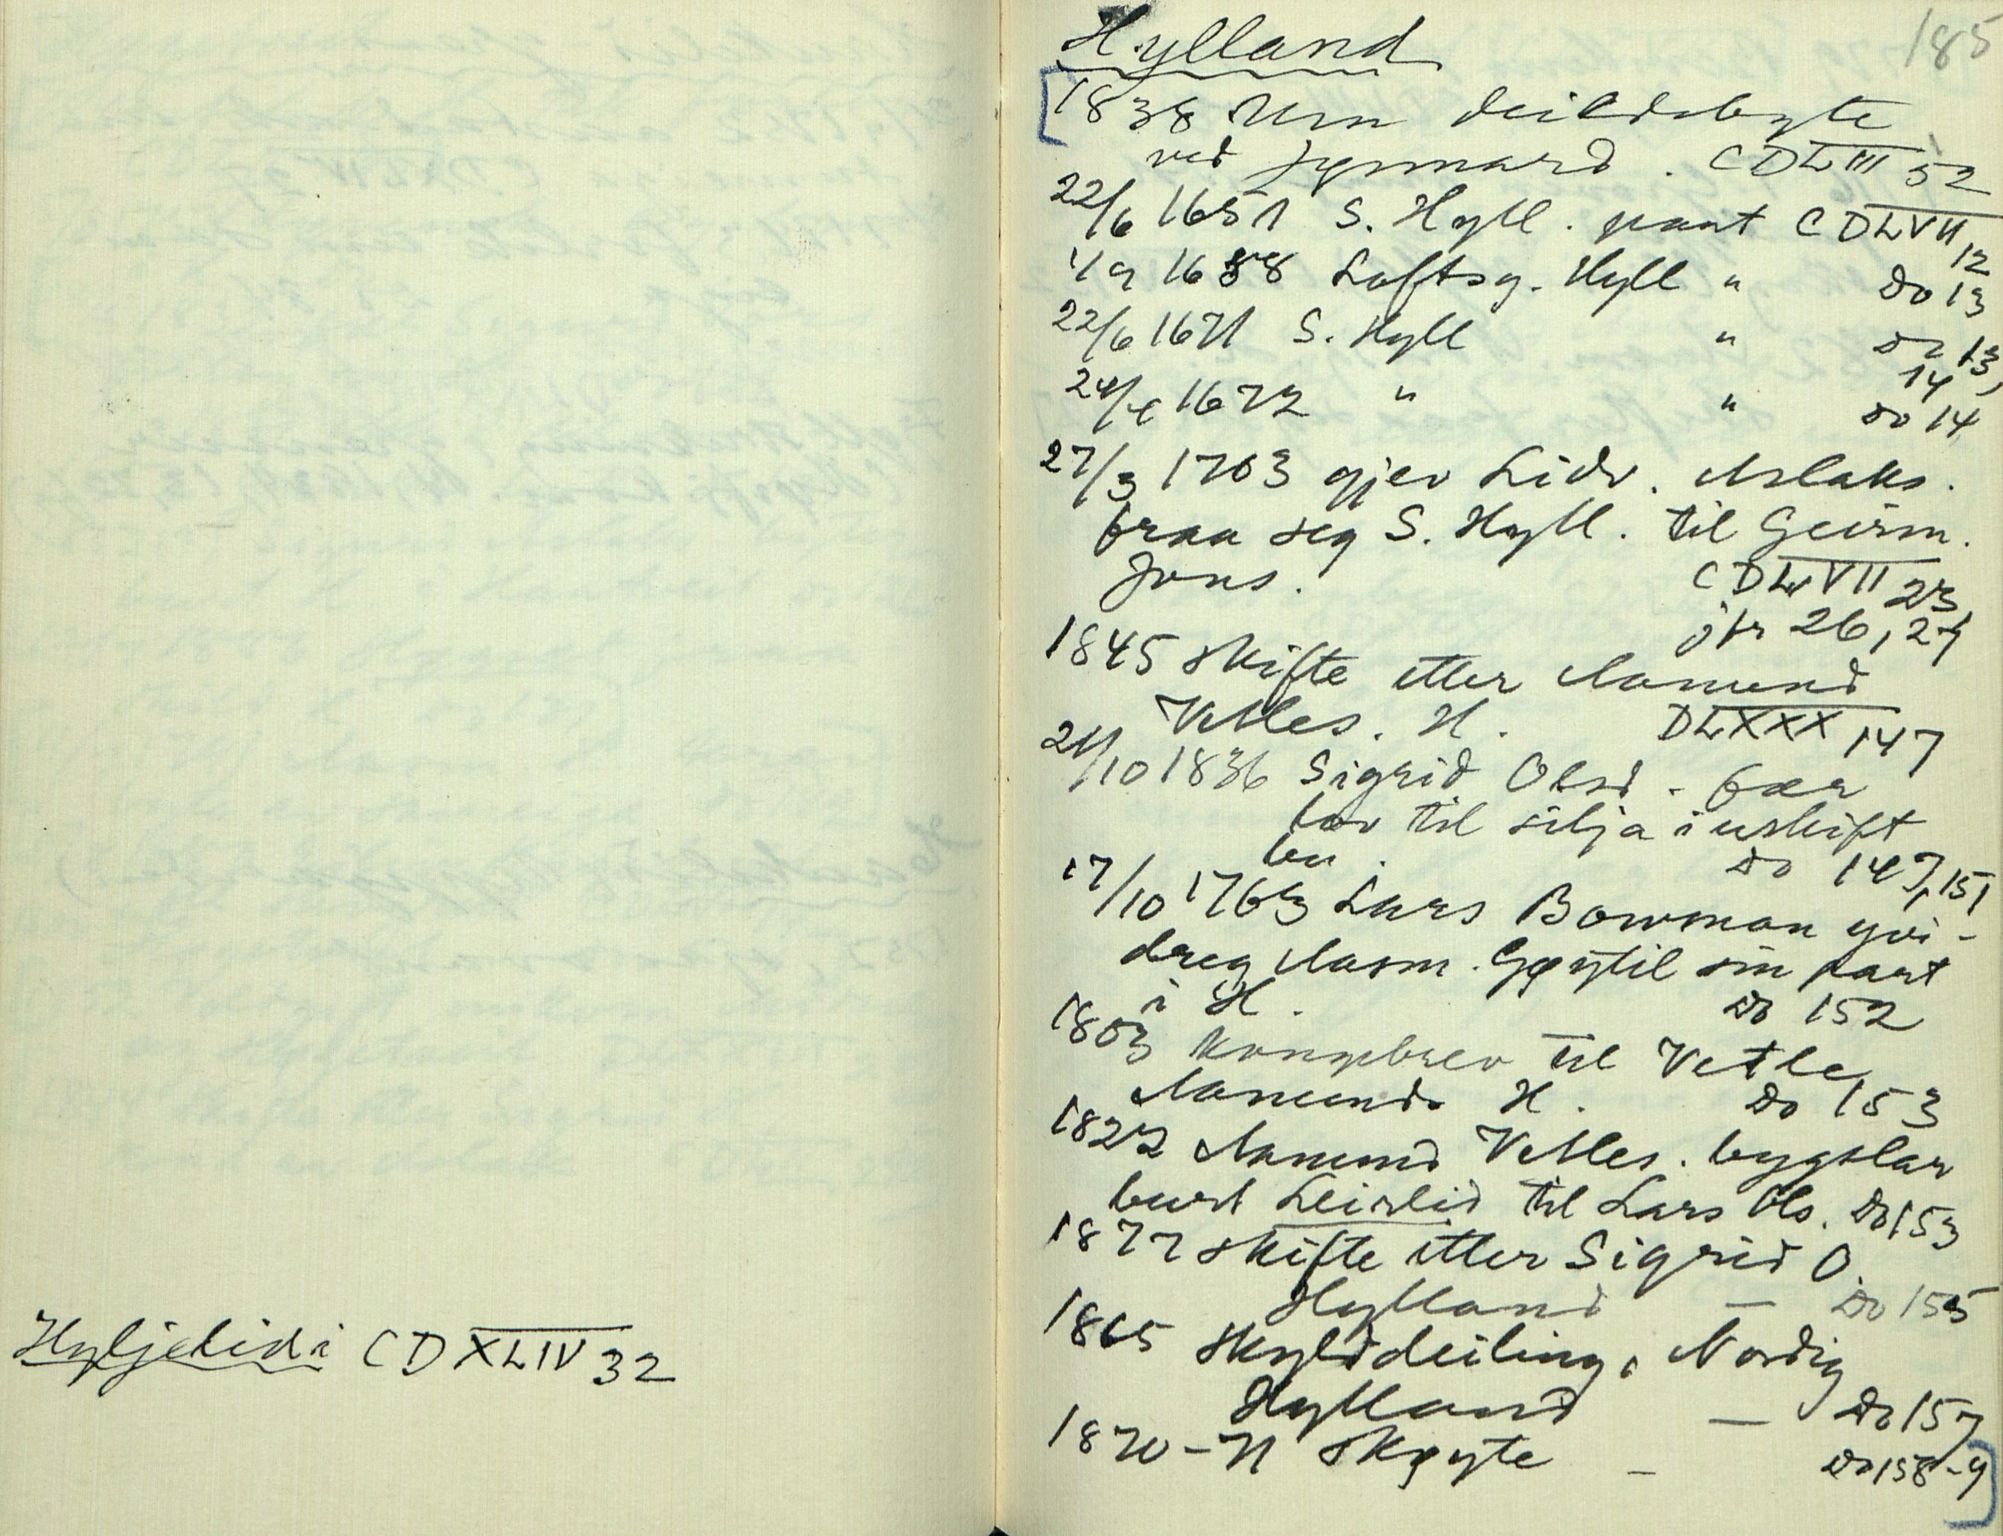 Hyljelidi CDXLIV 32
185
Hylland
1838 Um deildebyte
ved CDLIII 52
22/6 1651 S. Hyll. pant CDLVII 12
1/9 1688 Loftsg. Hyll " Do 13
22/6 1671 S. Hyll " Do 13,
14
24/4 1672 " " Do 14
27/3 1703 gjev Lidv. Aslaks.
fraa seg S. Hyll. til Geirm.
Jons. CDLVII 23,
jfr 26, 27
1845 skifte etter Aamund
Vetles. H. DLXXX 147
24/10 1836 Sigrid Olsd. fær
lov til sitja i uskift
bu. Do 147, 151
17/10 1763 Lars Bowman yvi-
dreg Aasm. til sin part
i H. Do 152
1803 Kongebrev til Vetle
Aamunds. H. Do 153
1822 Aamund Vetles. bygslar
burt Leirlid til Lars Ols. Do 153
1877 skifte etter Sigrid O.
Hylland — Do 155
1865 Skylddeiling, Nordig
Hylland — Do 157
1870-71 Skøyte — Do 158-9